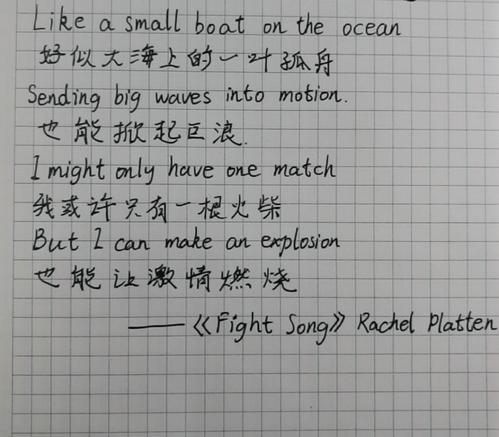 Like a small boat on the ocean
好似大海上的一叶孤舟
Sending big waves into motion.
也能掀起巨浪.
I might only have one match
我或许只有一根火柴
But I can make an explosion
也能让激情燃烧
——《Fight Song》 Rachel Platten